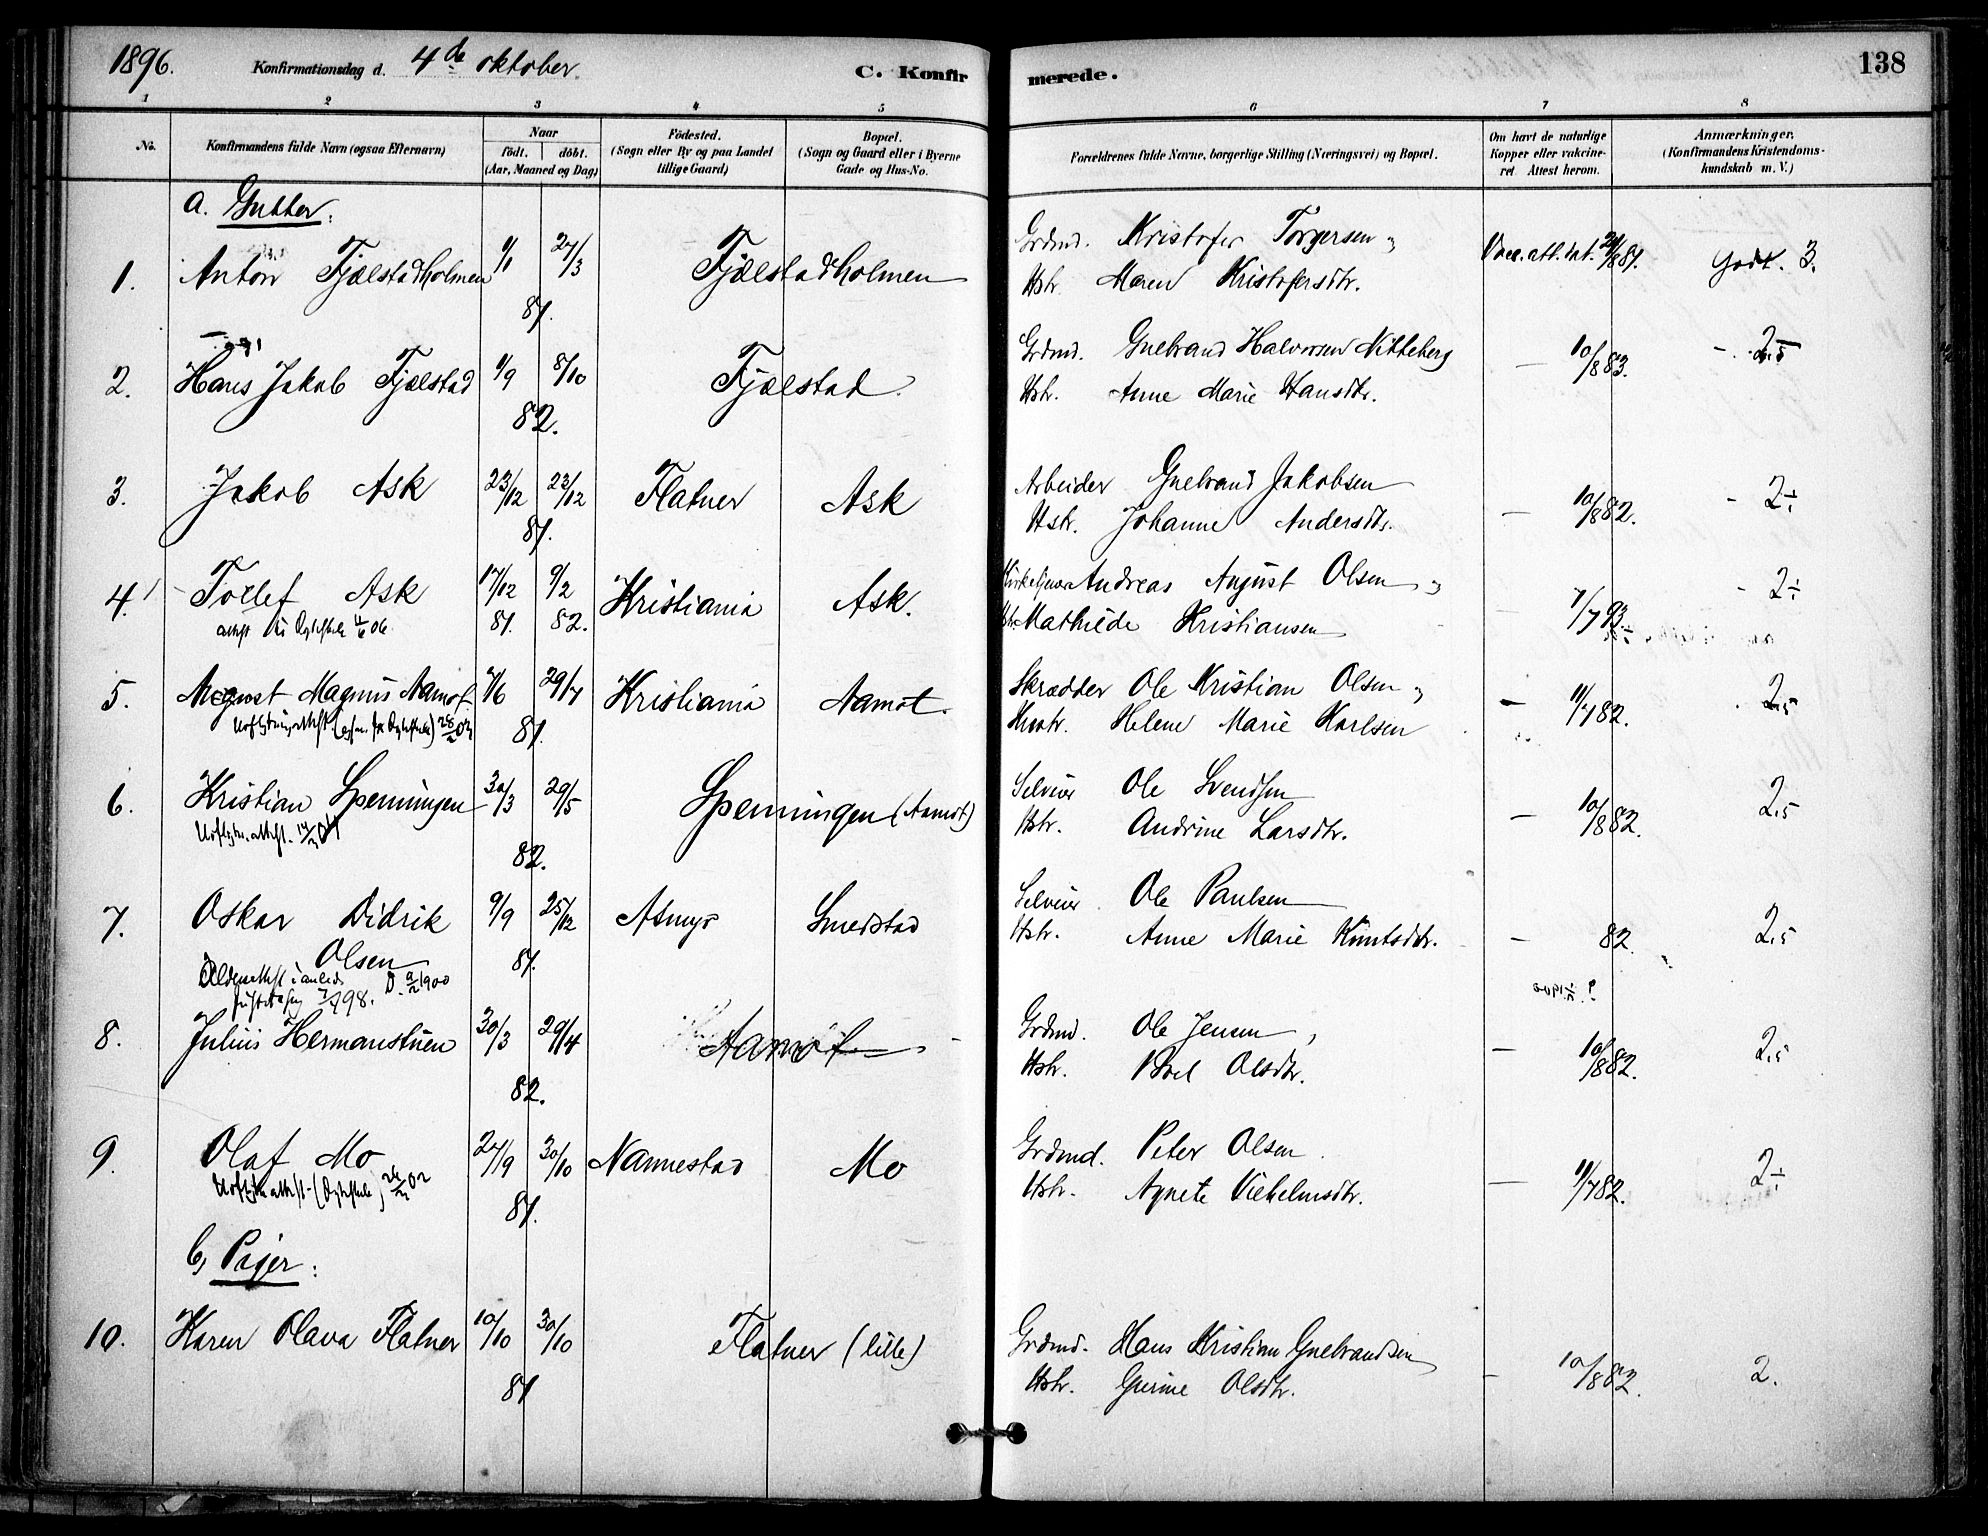 1896. Konfirmationsdag d. 4de oktober C. Konfirmerede. 138
1 2 3 4 5 6 7 8
No. Konfirmandens fulde Navn (ogsaa Efternavn) Naar født. døbt. (Aar, Maaned og Dag) Fødested. (Sogn eller By og paa Landet tillige Gaard) Bopæl. (Sogn og Gaard eller i Byerne Gade og Hus-No. Forældrenes fulde Navne, borgerlige Stilling (Næringsvei) og Bopæl. Om havt de naturlige Kopper eller vakcineret Attest herom. Anmærkninger. (Konfirmandens Kristendomskundskab m. V.)
a. Gutter:
1. Anton Fjælstadholmen 1/1 27/3 81. Fjælstadholmen Grdmd. Kristofer Torgersen Hstr. Maren Kristofersdtr. Godt. 3.
2. Hans Jakob Fjælstad 1/9 8/10 82. Fjælstad. Grdmd. Gulbrand Halvorsen Nitteberg Hstr. Anne Marie Hansdtr. — 10/8 83. - 2.5
3. Jakob Ask 23/12 23/12 81. Flatner Ask Arbeider Gulbrand Jakobsen Hstr. Johanne Andersdtr. — 10/8 82. - 2÷
4. Torlef Ask 17/12 81. 9/2 82. Kristiania Ask. Andreas August Olsen Mathilde Kristiansen — 7/7 93. - 2÷
5. August Magnus Aamot 7/6 29/7 81. Kristiania Aamot. Skrædder Ole Kristian Olsen Hustr. Helene Marie Karlsen — 11/7 82. 2.5
6. Kristian Spenningen 30/3 29/5 82. Spenningen (Aamot) Selveier Ole Svendsen Hstr. Andrine Larsdtr. — 10/8 82. 2.5
7. Oskar Didrik Olsen 9/9 25/12 81. Asmyr Smedstad Selveier Ole Paulsen Hstr. Anne Marie Knutsdtr. — 82 2.5
8. Julius Hermanstuen 30/3 29/4 82. Aamot Grdmd. Ole Jensen, Hstr. Boel Olsdtr. — 10/8 82. 2.5
9. Olaf Mo 27/9 30/10 81. Nannestad Mo Grdmd. Peter Olsen Hstr. Agnete Vilhelmsdtr. — 11/7 82. 2÷
b, Piger:
10. Karen Olava Flatner 10/10 30/10 81 Flatner (lille) Grdmd. Hans Kristian Gulbrandsen Hstr. Gurine Olsdtr. — 10/8 82. 2.